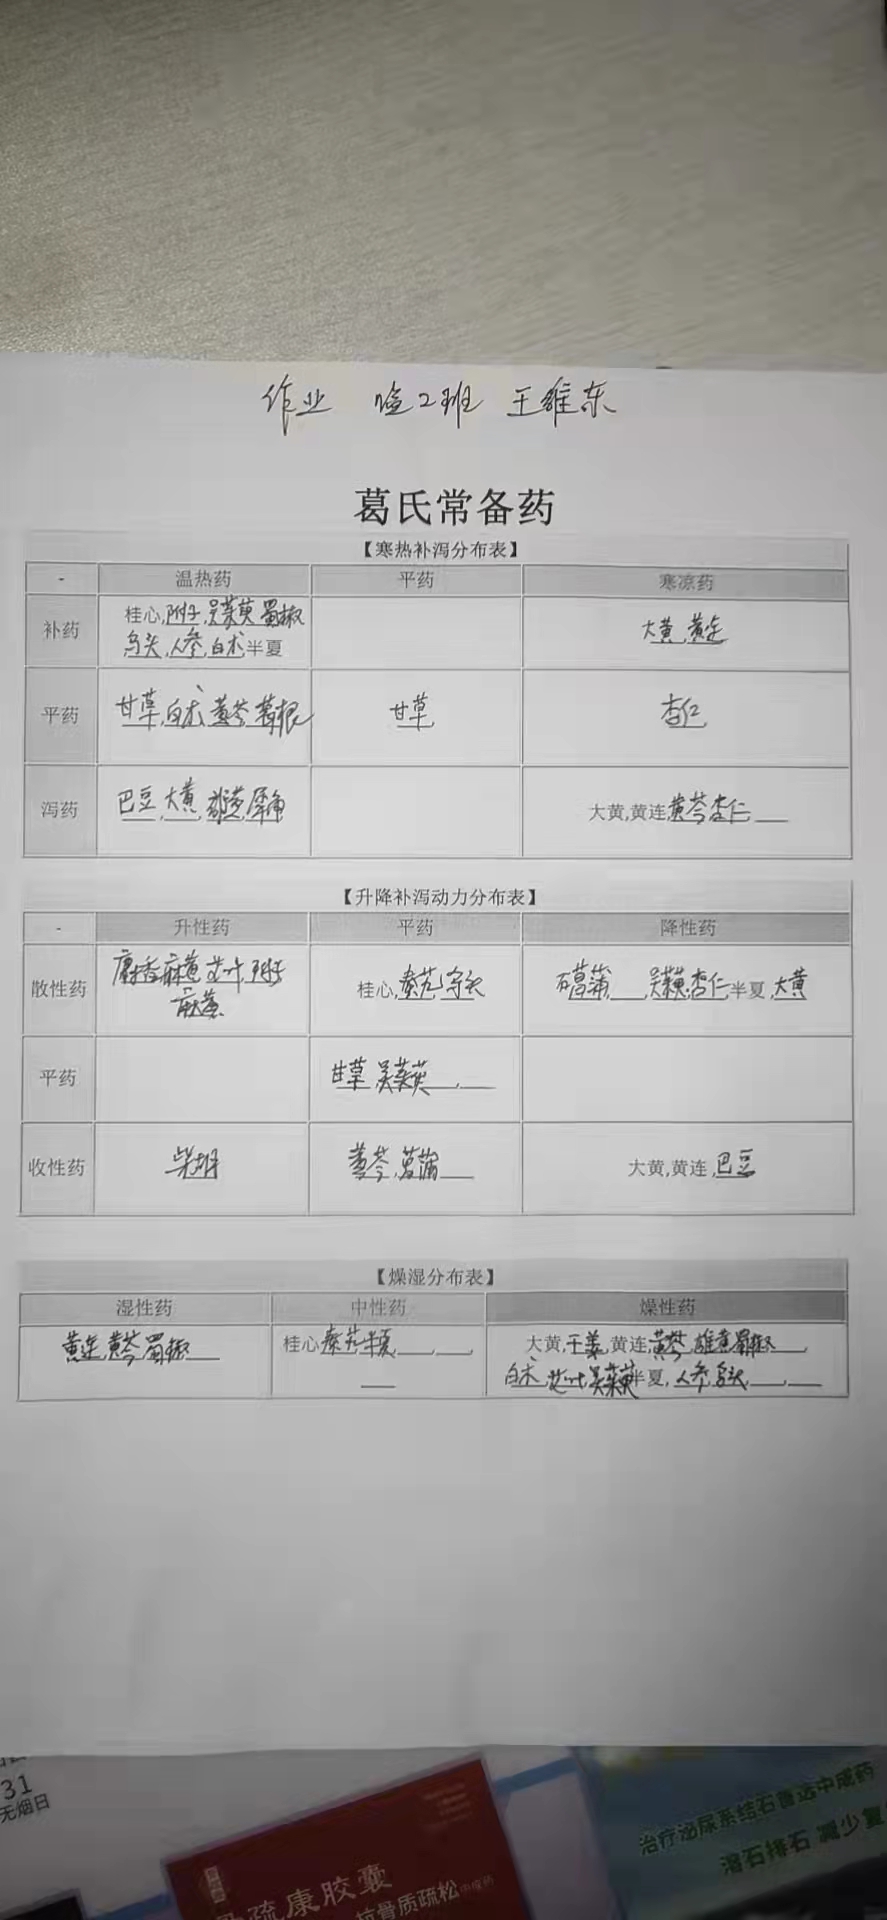 作业 2班 王维东
葛氏常备药
【寒热补泻分布表】
- 温热药 平药 寒凉药
补药 桂心,附子,吴茱萸 蜀椒 大黄,黄连
乌头,人参,白术,半夏
平药 甘草,白术,黄芩,葛根 甘草 杏仁
泻药 巴豆,大黄,雄黄,犀角 大黄,黄连,黄芩,杏仁,___
【升降补泻动力分布表】
- 升性药 平药 降性药
散性药 麝香,麻黄,艾叶,附子 桂心,秦艽,乌头 石菖蒲,___,吴茱萸,杏仁,半夏,大黄
麻黄
平药 甘草,吴茱萸,___
收性药 柴胡 黄芩,菖蒲,___ 大黄,黄连,巴豆
【燥湿分布表】
湿性药 中性药 燥性药
黄连,黄芩,蜀椒,___ 桂心,秦艽,半夏,___,___, 大黄,干姜,黄连,黄芩,雄黄,蜀椒,___,
___ 白术,艾叶,吴茱萸,半夏,人参,乌头,___,___
31
无烟日
疏康胶囊
抗骨质疏松中成药
治疗泌尿系结石首选中成药
溶石排石 减少复